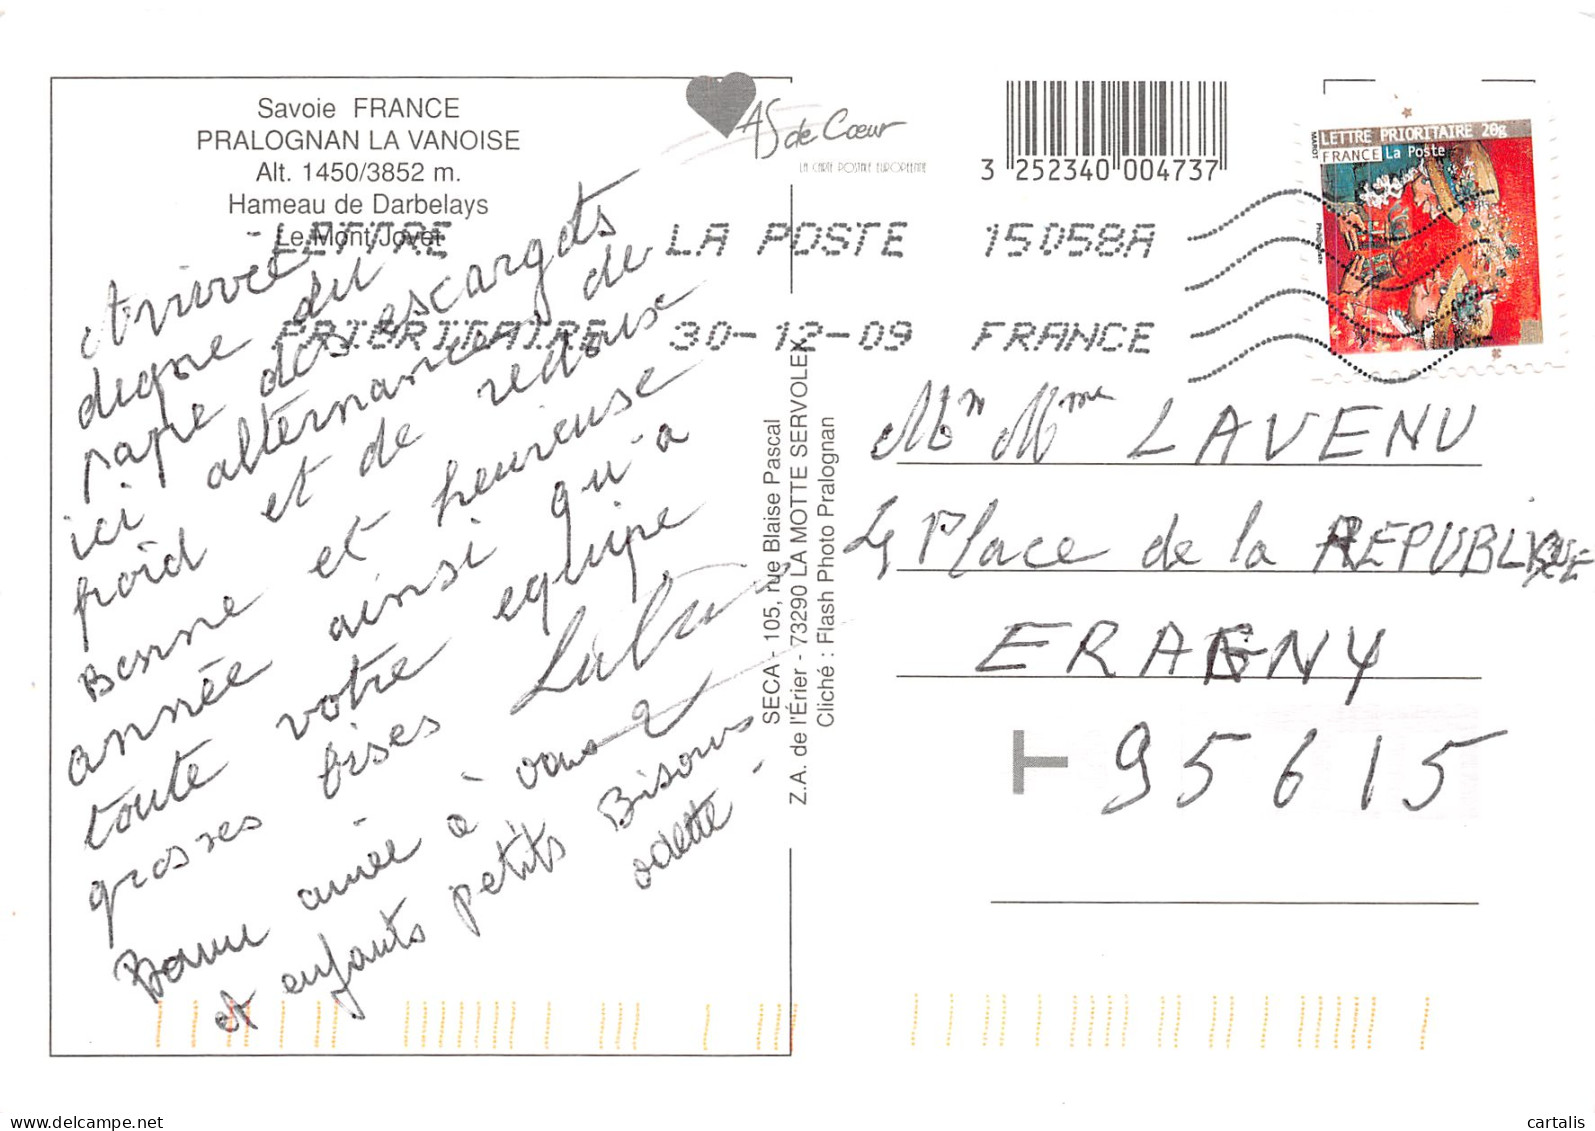 Savoie FRANCE
PRALOGNAN LA VANOISE
Alt. 1450/3852 m.
Hameau de Darbelays
Le Mont Jovet
AS de Cœur
LA CARTE POSTALE EUROPEENNE
3 252340 004737
LETTRE PRIORITAIRE 20g
FRANCE La Poste
LETTRE LA POSTE 15058A
PRIORITAIRE 30-12-09 FRANCE
Arrivée
digne du
pape des escargots
ici alternance de
froid et de redoux
Bonne et heureuse
année ainsi qu'à
toute votre equipe
grosses bises
Bonne année à vous 2
et enfants petits Bisous
odette
SECA - 105, rue Blaise Pascal
Z.A. de l'Érier - 73290 LA MOTTE SERVOLEX
Cliché : Flash Photo Pralognan
Mr Mme LAVENU
Place de la REPUBLIQUE
ERAGNY
T 95615
cartalis